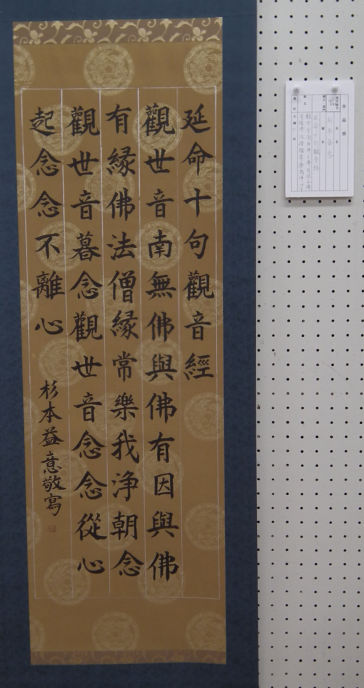 延命十句觀音經
觀世音南無佛與佛有因與佛
有縁佛法僧縁常樂我浄朝念
觀世音暮念觀世音念念從心
起念念不離心
杉本益意敬寫